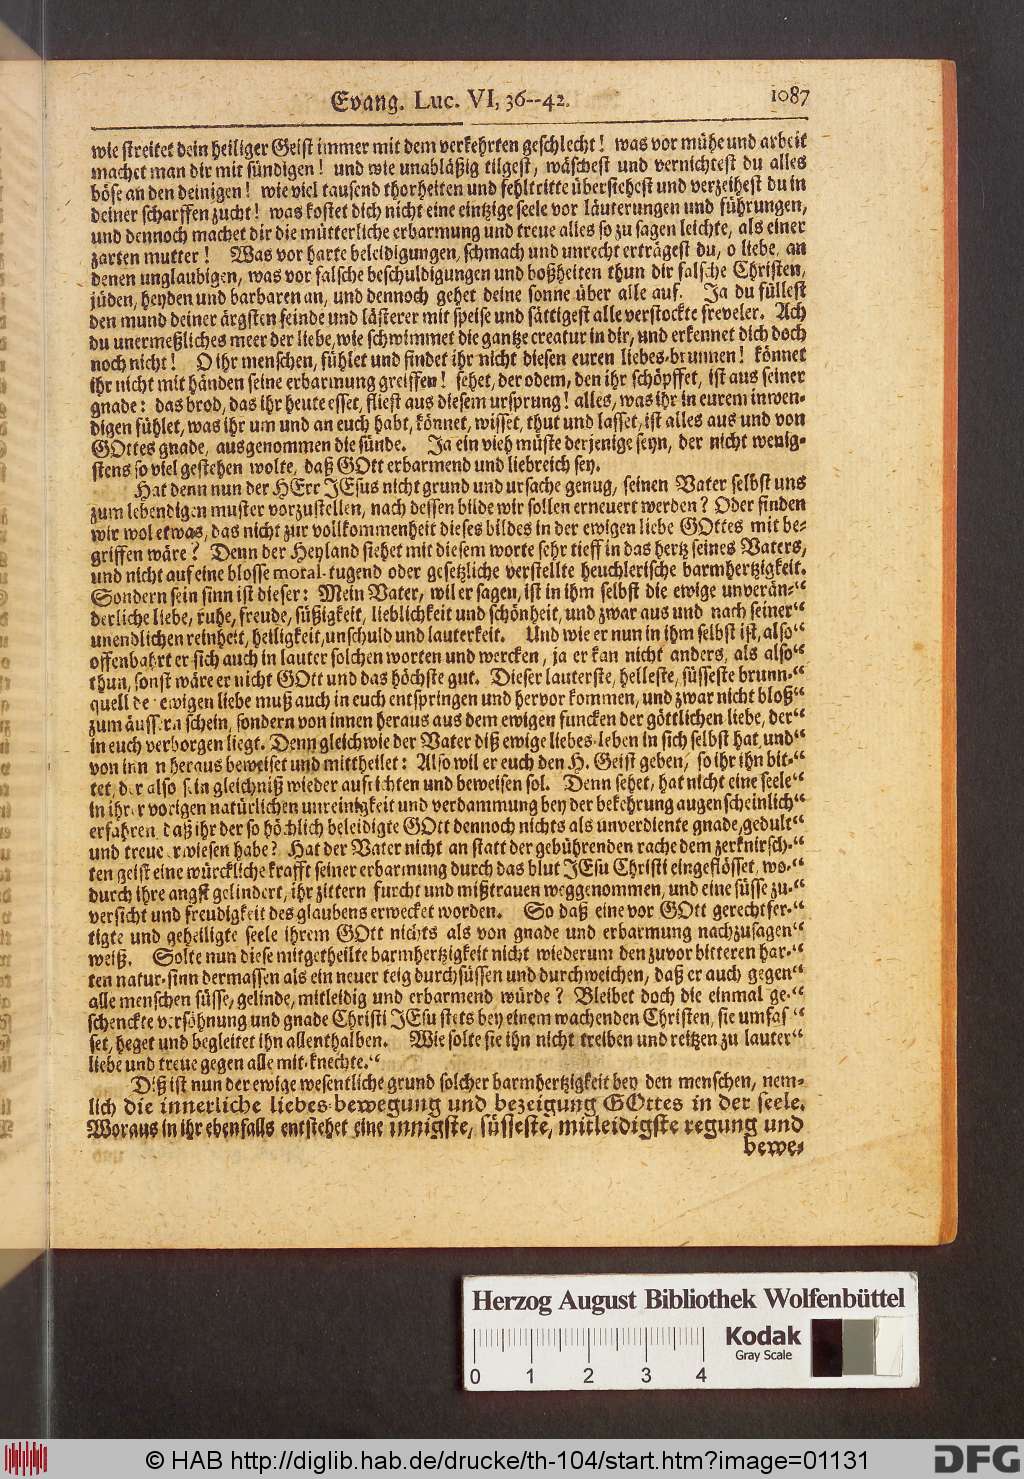 Evang. Luc. VI, 36--42. 1087
wie streitet dein heiliger Geist immer mit dem verkehrten geschlecht! was vor mühe und arbeit
machet man dir mit sündigen! und wie unabläßig tilgest, wäschest und vernichtest du alles
böse an den deinigen! wie viel tausend thorheiten und fehltritte überstehest und verzeihest du in
deiner scharffen zucht! was kostet dich nicht eine eintzige seele vor läuterungen und führungen,
und dennoch machet dir die mütterliche erbarmung und treue alles so zu sagen leichte, als einer
zarten mutter! Was vor harte beleidigungen, schmach und unrecht erträgest du, o liebe, an
denen unglaubigen, was vor falsche beschuldigungen und boßheiten thun dir falsche Christen,
jüden, heyden und barbaren an, und dennoch gehet deine sonne über alle auf. Ja du füllest
den mund deiner ärgsten feinde und lästerer mit speise und sättigest alle verstockte freveler. Ach
du unermeßliches meer der liebe, wie schwimmet die gantze creatur in dir, und erkennet dich doch
noch nicht! O ihr menschen, fühlet und findet ihr nicht diesen euren liebes-brunnen! könnet
ihr nicht mit händen seine erbarmung greiffen! sehet, der odem, den ihr schöpffet, ist aus seiner
gnade: das brod, das ihr heute esset, fliest aus diesem ursprung! alles, was ihr in eurem inwen-
digen fühlet, was ihr um und an euch habt, könnet, wisset, thut und lasset, ist alles aus und von
GOttes gnade, ausgenommen die sünde. Ja ein vieh müste derjenige seyn, der nicht wenig-
stens so viel gestehen wolte, daß GOtt erbarmend und liebreich sey.
Hat denn nun der HErr JEsus nicht grund und ursache genug, seinen Vater selbst uns
zum lebendigen muster vorzustellen, nach dessen bilde wir sollen erneuert werden? Oder finden
wir wol etwas, das nicht zur vollkommenheit dieses bildes in der ewigen liebe GOttes mit be-
griffen wäre? Denn der Heyland siehet mit diesem worte sehr tieff in das hertz seines Vaters,
und nicht auf eine blosse moral-tugend oder gesetzliche verstellte heuchlerische barmhertzigkeit.
Sondern sein sinn ist dieser: Mein Vater, wil er sagen, ist in ihm selbst die ewige unverän-“
derliche liebe, ruhe, freude, süßigkeit, lieblichkeit und schönheit, und zwar aus und nach seiner“
unendlichen reinheit, heiligkeit, unschuld und lauterkeit. Und wie er nun in ihm selbst ist, also“
offenbahrt er sich auch in lauter solchen worten und wercken, ja er kan nicht anders, als also“
thun, sonst wäre er nicht GOtt und das höchste gut. Dieser lauterste, helleste, süsseste brunn-“
quell der ewigen liebe muß auch in euch entspringen und hervor kommen, und zwar nicht bloß“
zum äussern schein, sondern von innen heraus aus dem ewigen funcken der göttlichen liebe, der“
in euch verborgen liegt. Denn gleichwie der Vater diß ewige liebes-leben in sich selbst hat, und“
von innen heraus beweiset und mittheilet: Also wil er euch den H. Geist geben, so ihr ihn bit-“
tet, der also sein gleichniß wieder aufrichten und beweisen sol. Denn sehet, hat nicht eine seele“
in ihrer vorigen natürlichen unreinigkeit und verdammung bey der bekehrung augenscheinlich“
erfahren, daß ihr der so höchlich beleidigte GOtt dennoch nichts als unverdiente gnade, gedult“
und treue erwiesen habe? Hat der Vater nicht an statt der gebührenden rache dem zerknirsch-“
ten geist eine würckliche krafft seiner erbarmung durch das blut JEsu Christi eingeflösset, wo-“
durch ihre angst gelindert, ihr zittern furcht und mißtrauen weggenommen, und eine süsse zu-“
versicht und freudigkeit des glaubens erwecket worden. So daß eine vor GOtt gerechtfer-“
tigte und geheiligte seele ihrem GOtt nichts als von gnade und erbarmung nachzusagen“
weiß. Solte nun diese mitgetheilte barmhertzigkeit nicht wiederum den zuvor bitteren har-“
ten natur-sinn dermassen als ein neuer teig durchsüssen und durchweichen, daß er auch gegen“
alle menschen süsse, gelinde, mitleidig und erbarmend würde? Bleibet doch die einmal ge-“
schenckte versöhnung und gnade Christi JEsu stets bey einem wachenden Christen, sie umfas“
set, heget und begleitet ihn allenthalben. Wie solte sie ihn nicht treiben und reitzen zu lauter“
liebe und treue gegen alle mit-knechte.“
Diß ist nun der ewige wesentliche grund solcher barmhertzigkeit bey den menschen, nem-
lich die innerliche liebes-bewegung und bezeigung GOttes in der seele.
Woraus in ihr ebenfalls entstehet eine innigste, süsseste, mitleidigste regung und
bewe-
Herzog August Bibliothek Wolfenbüttel
Kodak
Gray Scale
0 1 2 3 4
© HAB http://diglib.hab.de/drucke/th-104/start.htm?image=01131
DFG